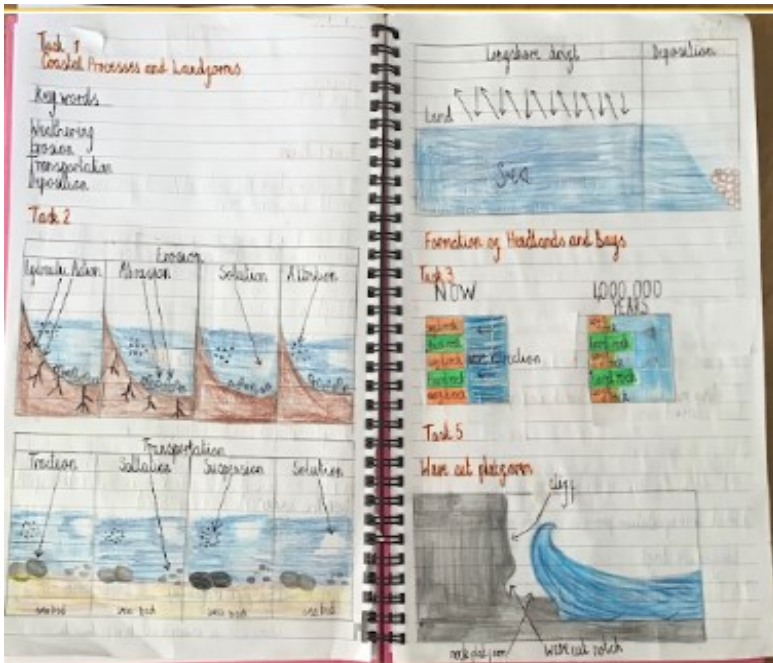 Task 1
Coastal Processes and Landforms
Key words
Weathering
Erosion
Transportation
Deposition
Task 2
Erosion
Hydraulic Action
Abrasion
Solution
Attrition
Transportation
Traction
Saltation
Suspension
Solution
sea bed
sea bed
sea bed
sea bed
Longshore drift
Deposition
Land
Sea
Formation of Headlands and Bays
Task 3
NOW
1,000,000
YEARS
soft rock
hard rock
soft rock
hard rock
soft rock
hard rock
hard rock
Task 5
Wave cut platform
cliff
rock platform
wave cut notch